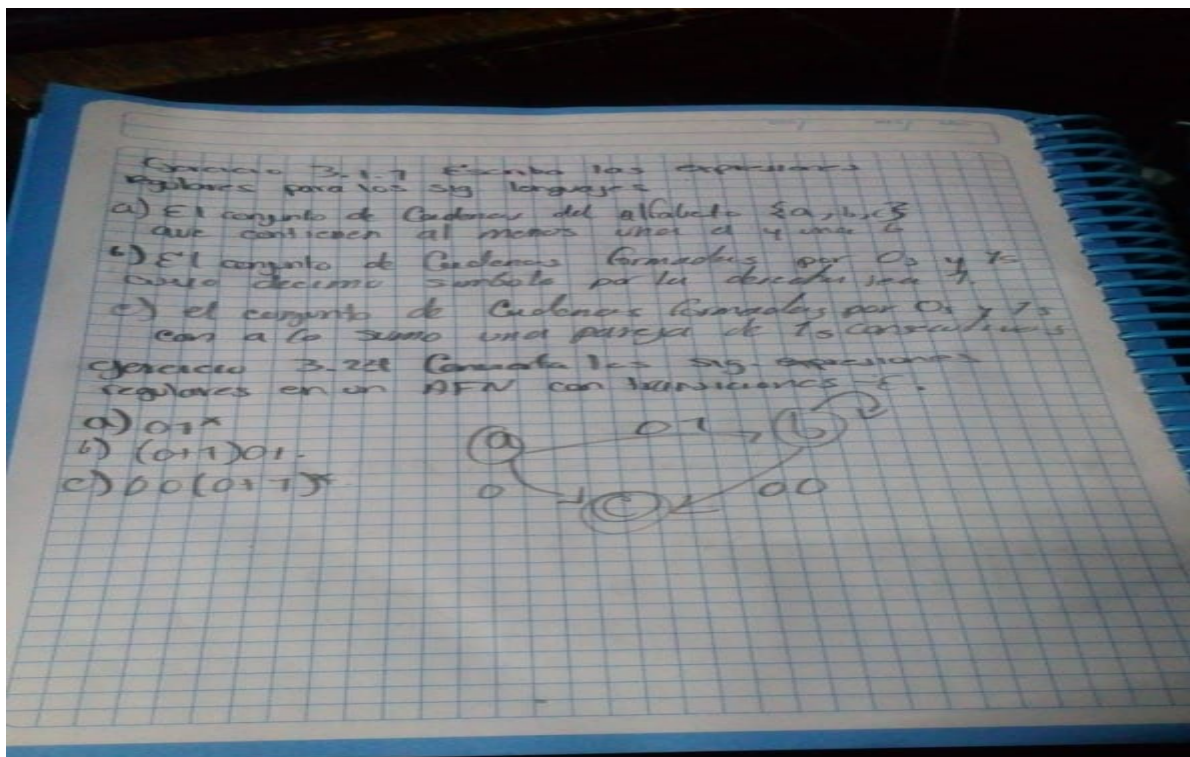 Ejercicio 3.1.1 Escriba las expresiones
regulares para los sig lenguajes
a) El conjunto de Cadenas del alfabeto {a, b, c}
que contienen al menos una a y una b
b) El conjunto de Cadenas formadas por 0s y 1s
cuyo decimo simbolo por la derecha sea 1.
c) el conjunto de Cadenas formadas por 0s y 1s
con a lo sumo una pareja de 1s consecutivos
ejercicio 3.2.4 Convierta las sig. expresiones
regulares en un AFN con transiciones - ε.
a) 01*
b) (0+1)01.
c) 00(0+1)*
a 01 b
0 c 00